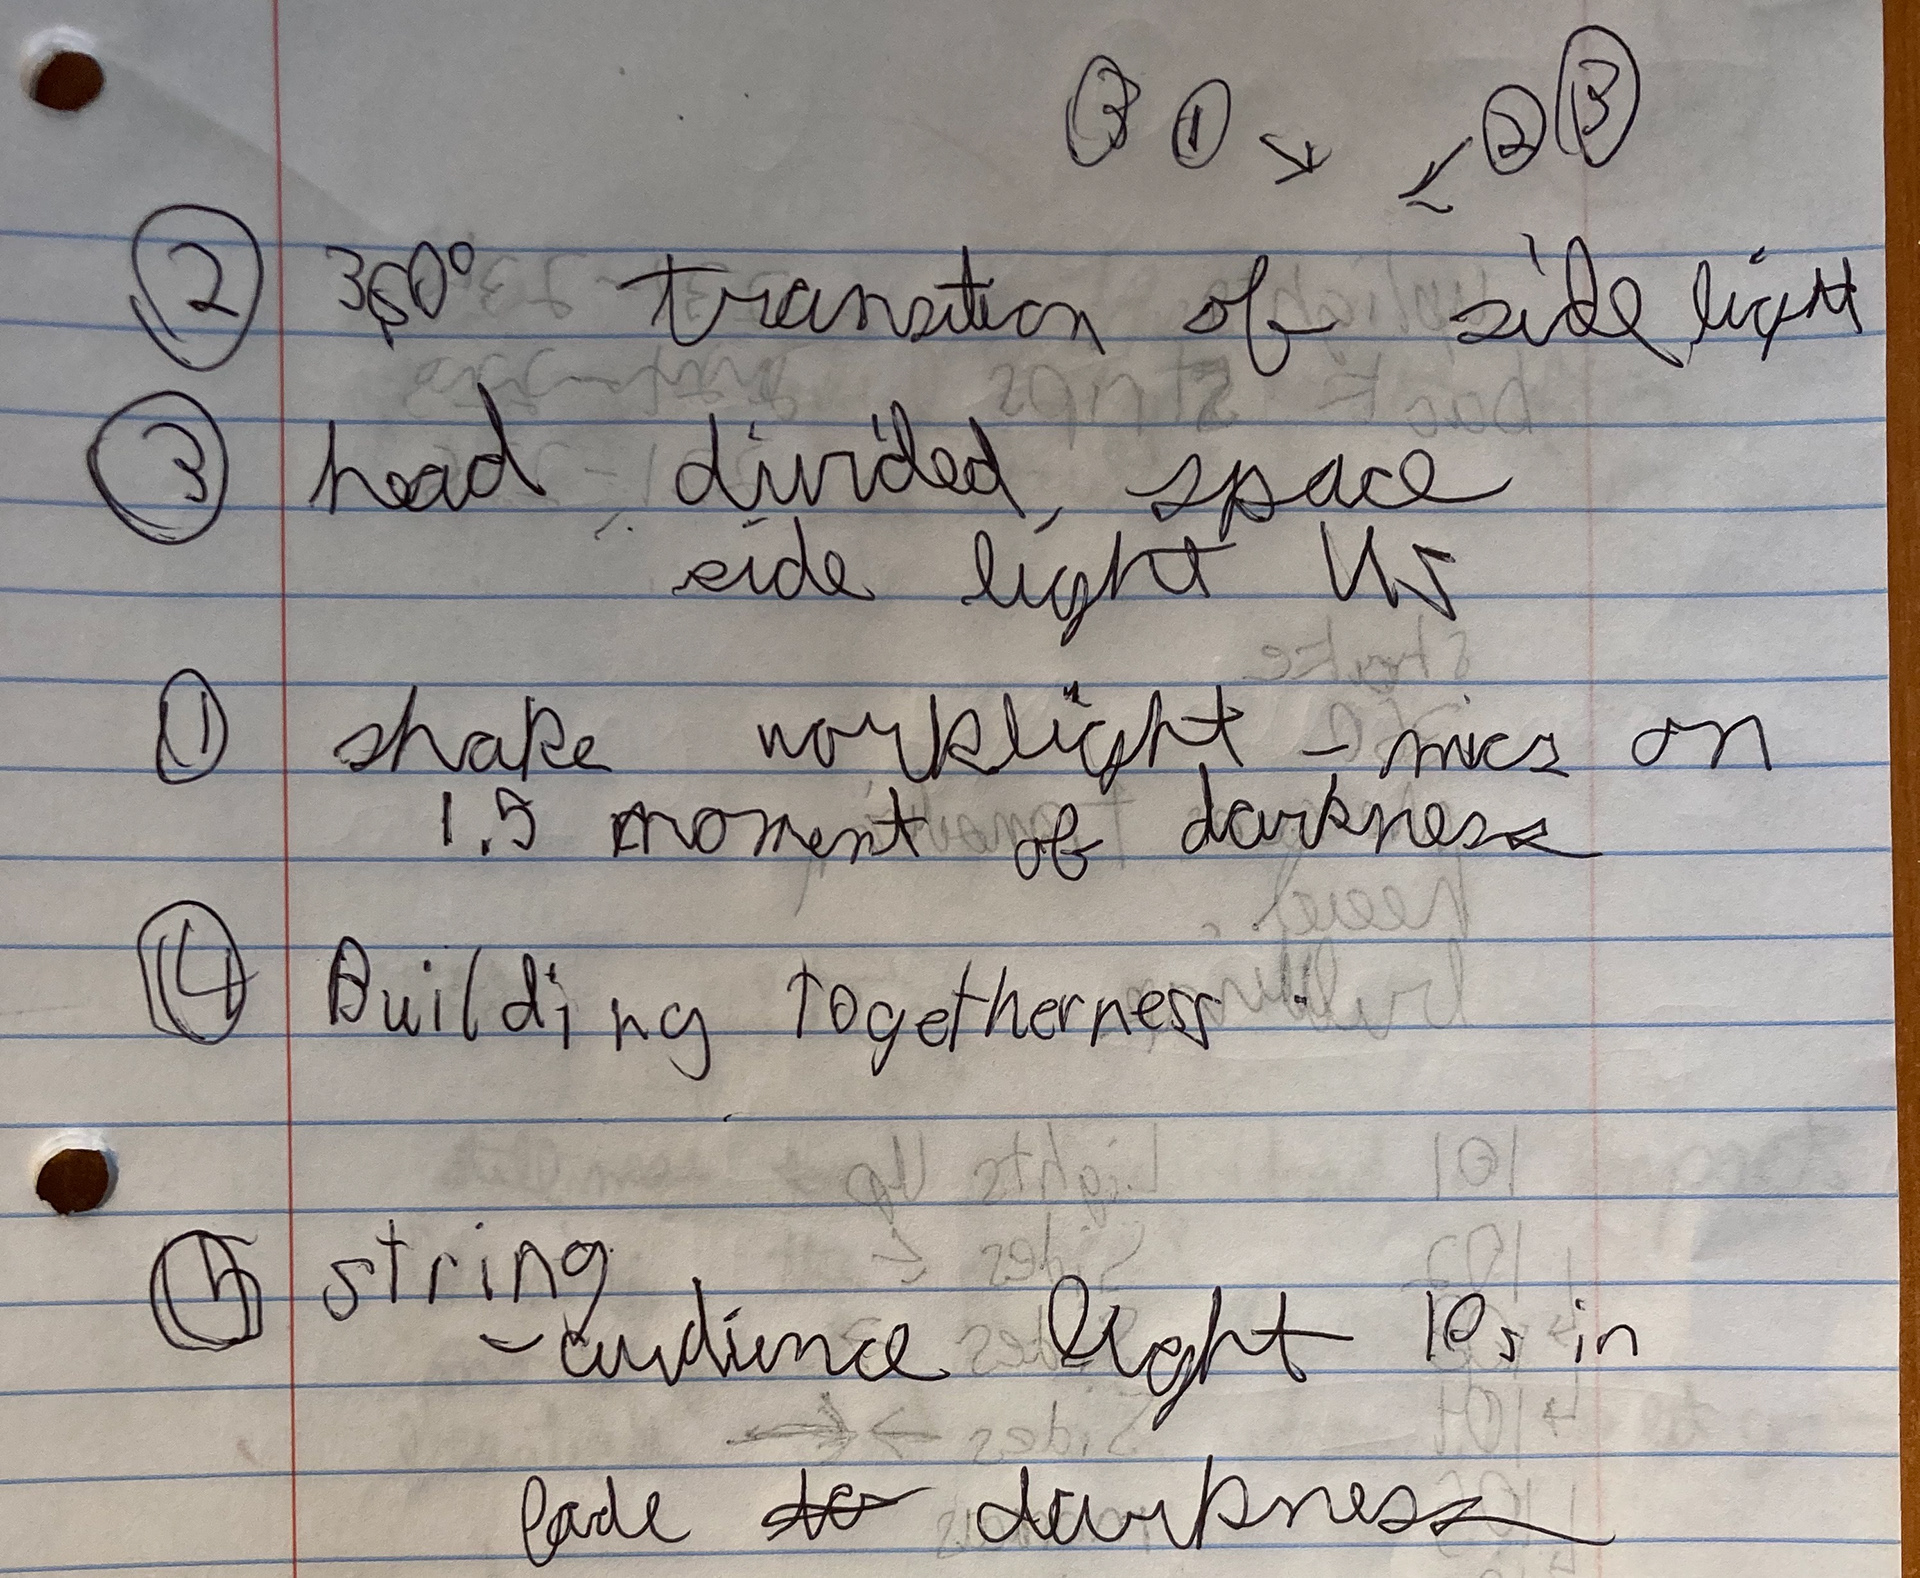 3 1 ↘ ↙ 2 3
2 360° transition of side light
3 head divided, space
side light US
1 shake worklight - mics on
1.5 moment of darkness
4 Building Togetherness
5 string
- audience light 10s in
fade to darkness